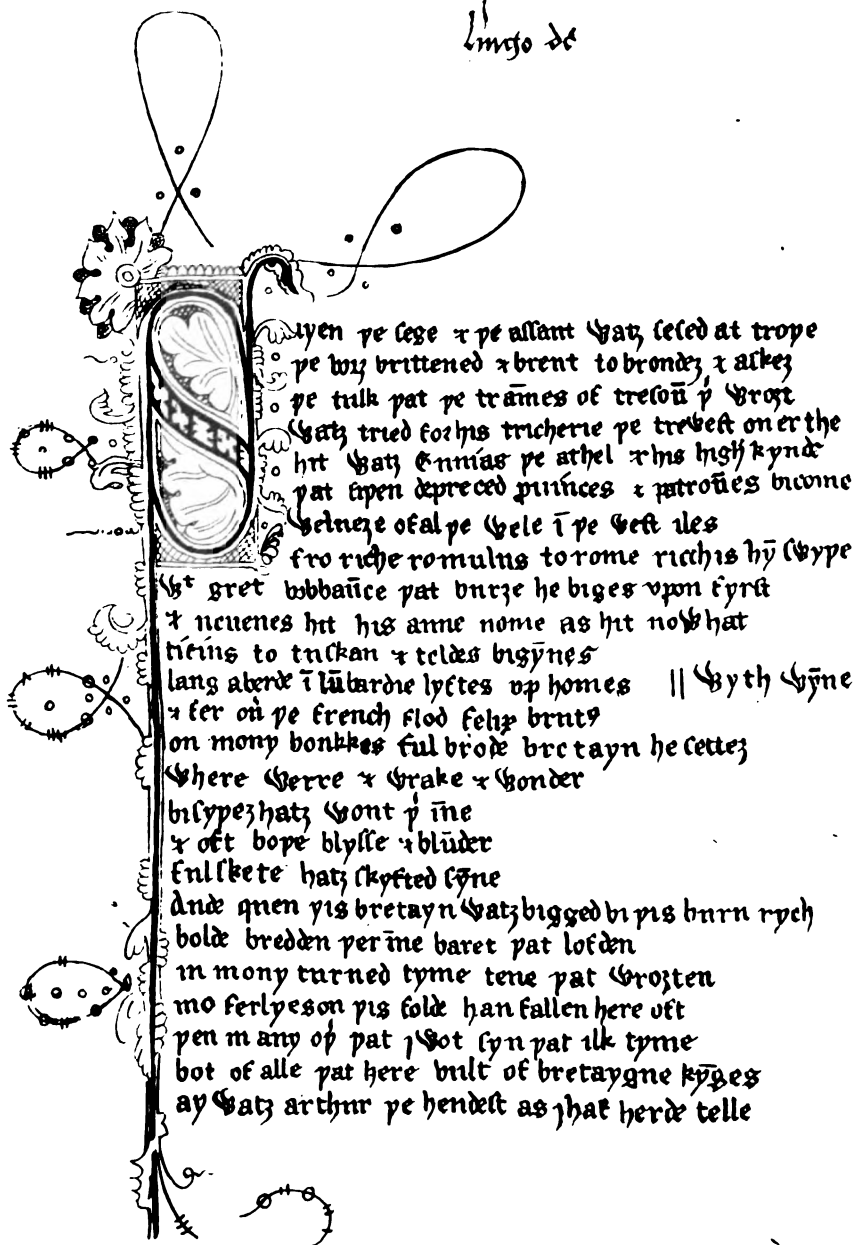 hugo de
Siþen þe sege & þe assaut watz sesed at troye
þe borȝ brittened & brent to brondeȝ & askez
þe tulk þat þe tra̅mes of tresou̅ þ̷ wroȝt
watz tried for his tricherie þe trewest on erthe
hit watz Ennias þe athel & his high kynde
þat siþen depreced prouinces & patrou̅es bicome
welneȝe of al þe wele i̅ þe west iles
fro riche romulus to rome ricchis hy̅ swyþe
wt gret bobbau̅ce þat burȝe he biges vpon fyrst
& neuenes hit his aune nome as hit now hat
ticius to tuskan & teldes bigy̅nes
langaberde i̅ lu̅bardie lyftes vp homes || wyth wy̅ne
& fer ou̅ þe french flod felix brutꝰ
on mony bonkkes ful brode bretayn he settez
where werre & wrake & wonder
bi syþez hatz wont þ̷ i̅ne
& oft boþe blysse & blu̅der
ful skete hatz skyfted sy̅ne
Ande quen þis bretayn watz bigged bi þis burn rych
bolde bredden þer i̅ne baret þat lofden
in mony turned tyme tene þat wroȝten
mo ferlyes on þis folde han fallen here oft
þen in any oþ̷ þat I wot syn þat ilk tyme
bot of alle þat here bult of bretaygne ky̅ges
ay watz arthur þe hendest as I haf herde telle